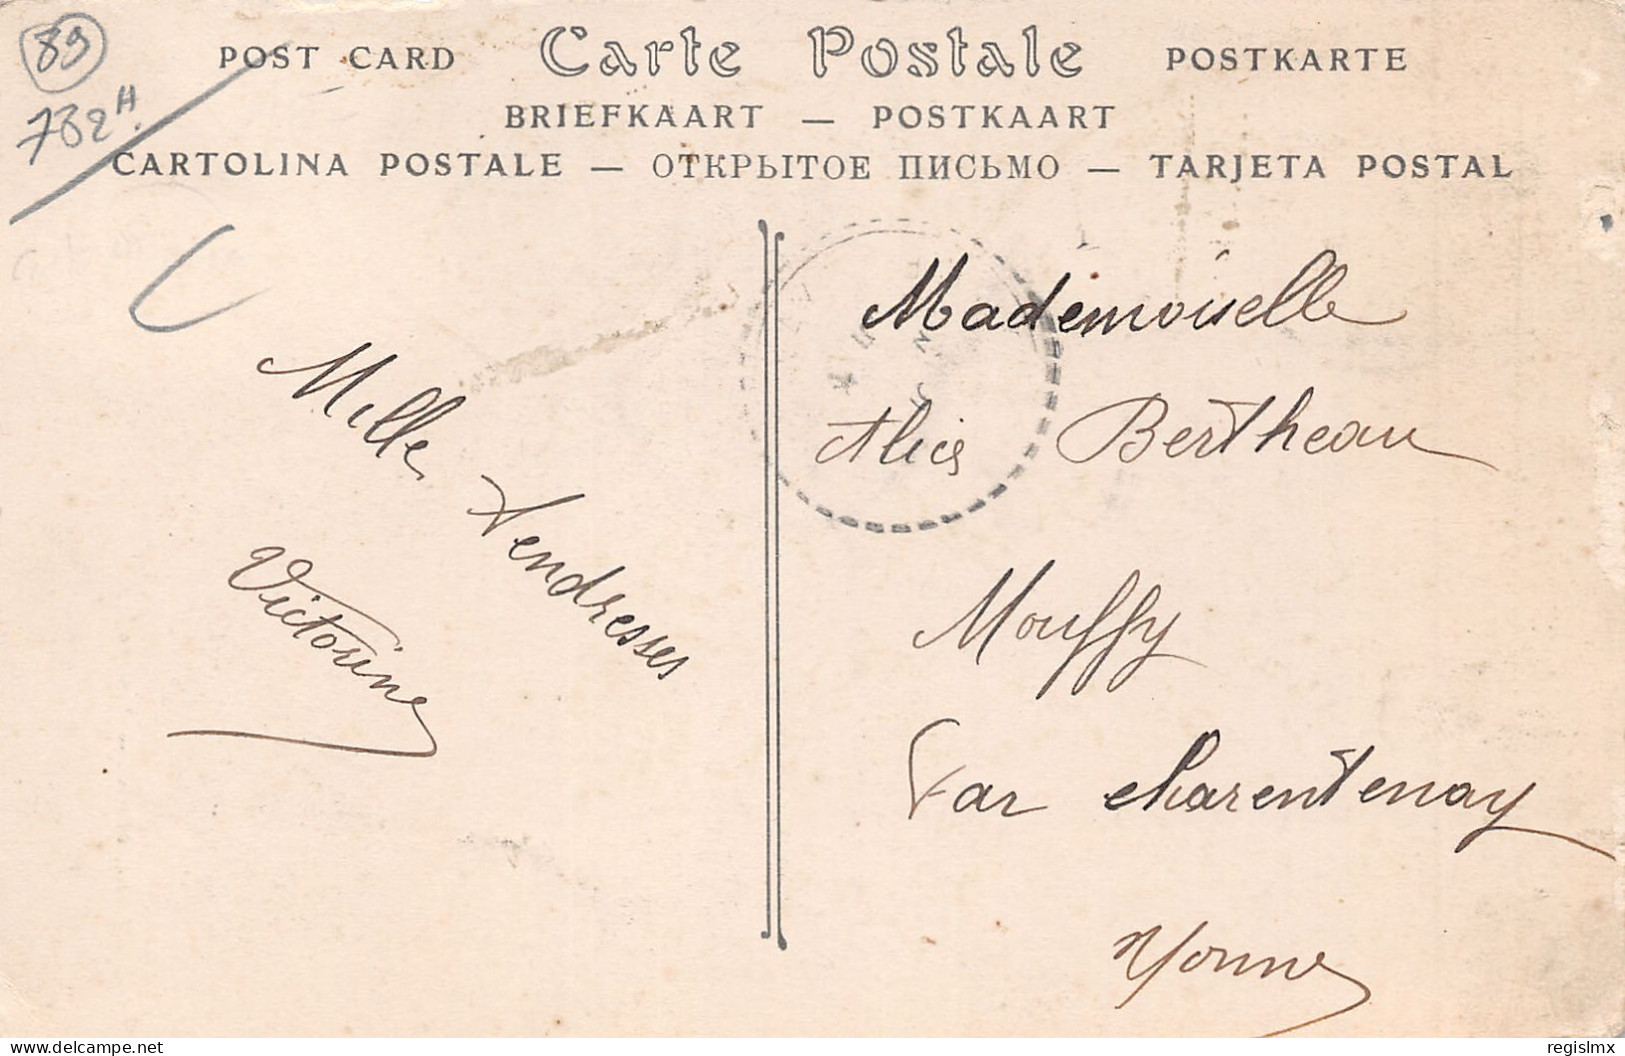 89
782 H
POST CARD Carte Postale POSTKARTE
BRIEFKAART — POSTKAART
CARTOLINA POSTALE — ОТКРЫТОЕ ПИСЬМО — TARJETA POSTAL
Mille Tendresses
Victorine
Mademoiselle
Alice Bertheau
Mouffy
Par Charentenay
Yonne
delcampe.net
regislmx